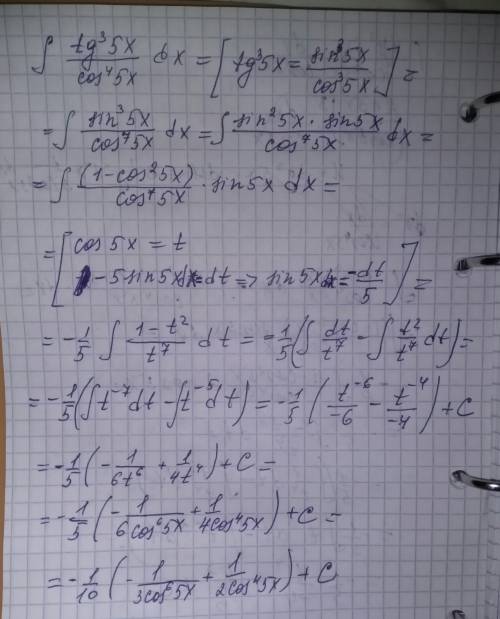 ∫ tg³5x/cos⁴5x dx = [tg³5x = sin³5x/cos³5x] =
= ∫ sin³5x/cos⁷5x dx = ∫ sin²5x · sin5x/cos⁷5x dx =
= ∫ (1-cos²5x)/cos⁷5x · sin5x dx =
= [cos5x = t
-5sin5xdx=dt => sin5xdx=-dt/5] =
= -1/5 ∫ 1-t²/t⁷ dt = -1/5(∫ dt/t⁷ - ∫ t²/t⁷ dt) =
= -1/5(∫t⁻⁷dt - ∫t⁻⁵dt) = -1/5 (t⁻⁶/-6 - t⁻⁴/-4) + C
= -1/5 (-1/6t⁶ + 1/4t⁴) + C =
= -1/5 (-1/6cos⁶5x + 1/4cos⁴5x) + C =
= -1/10 (-1/3cos⁶5x + 1/2cos⁴5x) + C